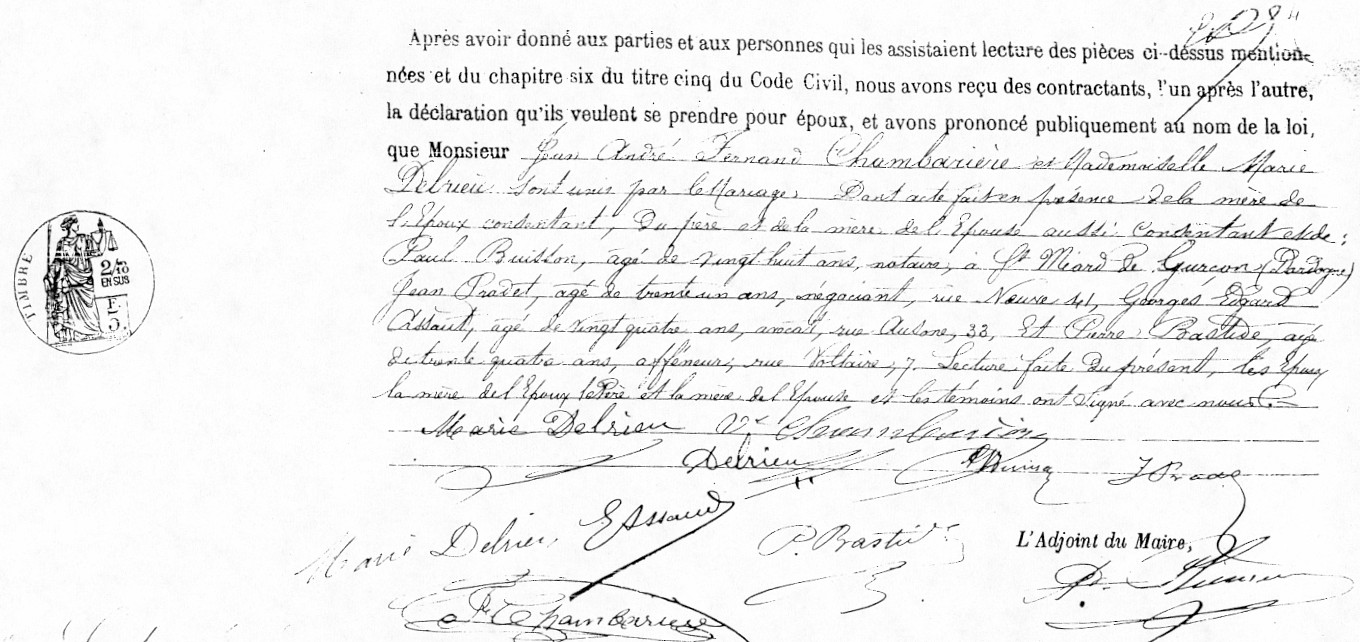 Après avoir donné aux parties et aux personnes qui les assistaient lecture des pièces ci-dessus mention-
nées et du chapitre six du titre cinq du Code Civil, nous avons reçu des contractants, l'un après l'autre,
la déclaration qu'ils veulent se prendre pour époux, et avons prononcé publiquement au nom de la loi,
que Monsieur Jean André Fernand Chambarière et Mademoiselle Marie
Delrieu sont unis par le Mariage. Dont acte fait en présence de la mère de
l'Epoux consentant, du père et de la mère de l'Epouse aussi consentant et de :
Paul Buisson, agé de vingt huit ans, notaire, à St Méard de Gurçon (Dordogne)
Jean Pradet, agé de trente un ans, négociant, rue Neuve 41, Georges Edgard
Assaut, agé de vingt quatre ans, avocat, rue Ausone, 33, Et Pierre Bastide, agé
de trente quatre ans, affréteur, rue Voltaire, 7. Lecture faite du présent, les Epoux
la mère de l'Epoux le Père et la mère de l'Epouse et les témoins ont signé avec nous.
Marie Delrieu Vve Chambarière
Delrieu J Prade
TIMBRE
2/10
EN SUS
Marie Delrieu E Assaud P. Bastide
L'Adjoint du Maire,
F. Chambarière